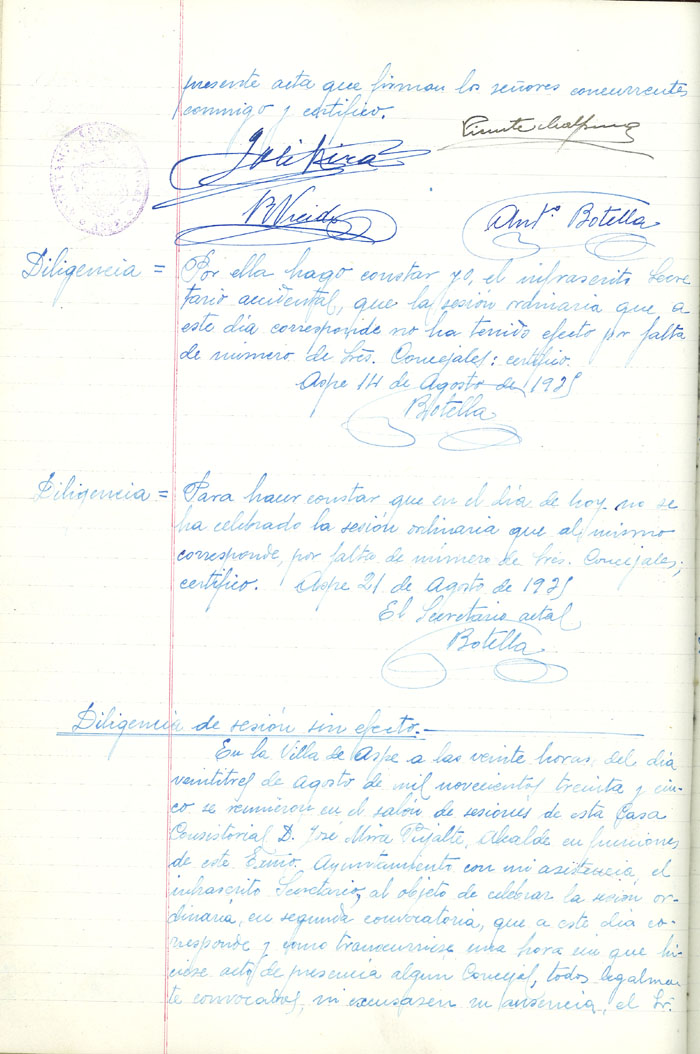 presente acta que firman los señores concurrentes
conmigo y certifico.
José Mira
B Vicedo
Antº Botella
Diligencia = Por ella hago constar yo, el infrascrito Secre
tario accidental, que la sesión ordinaria que a
este día corresponde no ha tenido efecto por falta
de número de Srés. Concejales: certifico.
Aspe 14 de Agosto de 1935
Botella
Diligencia = Para hacer constar que en el día de hoy no se
ha celebrado la sesión ordinaria que al mismo
corresponde, por falta de número de Srés. Concejales;
certifico. Aspe 21 de Agosto de 1935
El Secretario actal
Botella
Diligencia de sesión sin efecto.
En la Villa de Aspe a las veinte horas, del día
veintitres de Agosto de mil novecientos treinta y cin-
co se reunieron en el salón de sesiones de esta Casa
Consistorial D. José Mira Pujalte, Alcalde en funciones
de este Exmo. Ayuntamiento con mi asistencia, el
infrascrito Secretario, al objeto de celebrar la sesión or-
dinaria, en segunda convocatoria, que a este día co-
rresponde y como transcurriese una hora sin que hi-
ciese acto de presencia algun Concejal, todos legalmen
te convocados, ni excusasen su ausencia, el Sr.